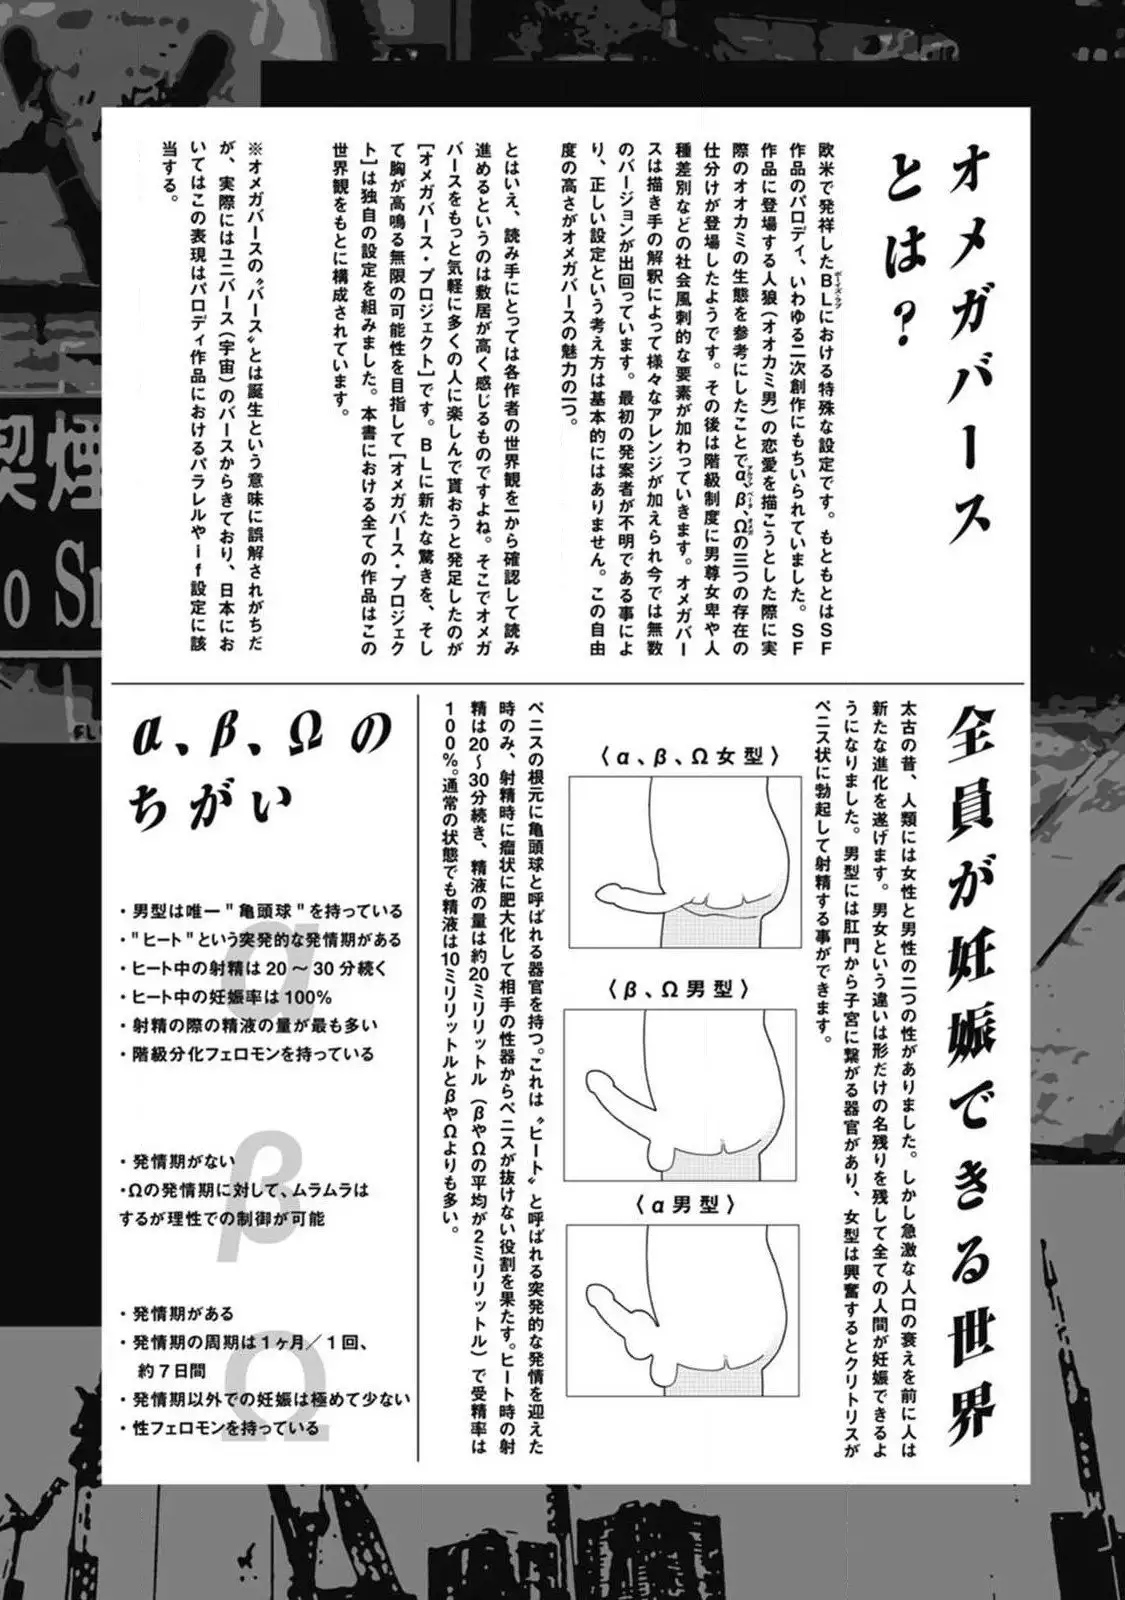 オメガバース
とは？
欧米で発祥したBLにおける特殊な設定です。もともとはSF
作品のパロディ、いわゆる二次創作にもちいられていました。SF
作品に登場する人狼（オオカミ男）の恋愛を描こうとした際に実
際のオオカミの生態を参考にしたことでα、β、Ωの三つの存在の
仕分けが登場したようです。その後は階級制度に男尊女卑や人
種差別などの社会風刺的な要素が加わっていきます。オメガバー
スは描き手の解釈によって様々なアレンジが加えられ今では無数
のバージョンが出回っています。最初の発案者が不明である事によ
り、正しい設定という考え方は基本的にはありません。この自由
度の高さがオメガバースの魅力の一つ。
とはいえ、読み手にとっては各作者の世界観を一から確認して読み
進めるというのは敷居が高く感じるものですよね。そこでオメガ
バースをもっと気軽に多くの人に楽しんで貰おうと発足したのが
［オメガバース・プロジェクト］です。BLに新たな驚きを、そし
て胸が高鳴る無限の可能性を目指して［オメガバース・プロジェク
ト］は独自の設定を組みました。本書における全ての作品はこの
世界観をもとに構成されています。
※オメガバースの〝バース〟とは誕生という意味に誤解されがちだ
が、実際にはユニバース（宇宙）のバースからきており、日本にお
いてはこの表現はパロディ作品におけるパラレルやif設定に該
当する。
全員が妊娠できる世界
太古の昔、人類には女性と男性の二つの性がありました。しかし急激な人口の衰えを前に人は
新たな進化を遂げます。男女という違いは形だけの名残りを残して全ての人間が妊娠できるよ
うになりました。男型には肛門から子宮に繋がる器官があり、女型は興奮するとクリトリスが
ペニス状に勃起して射精する事ができます。
〈α、β、Ω女型〉
〈β、Ω男型〉
〈α男型〉
ペニスの根元に亀頭球と呼ばれる器官を持つ。これは〝ヒート〟と呼ばれる突発的な発情を迎えた
時のみ、射精時に瘤状に肥大化して相手の性器からペニスが抜けない役割を果たす。ヒート時の射
精は20〜30分続き、精液の量は約20ミリリットル（βやΩの平均が2ミリリットル）で受精率は
100%。通常の状態でも精液は10ミリリットルとβやΩよりも多い。
α、β、Ωの
ちがい
α
・男型は唯一"亀頭球"を持っている
・"ヒート"という突発的な発情期がある
・ヒート中の射精は20〜30分続く
・ヒート中の妊娠率は100%
・射精の際の精液の量が最も多い
・階級分化フェロモンを持っている
β
・発情期がない
・Ωの発情期に対して、ムラムラは
するが理性での制御が可能
Ω
・発情期がある
・発情期の周期は1ヶ月／1回、
約7日間
・発情期以外での妊娠は極めて少ない
・性フェロモンを持っている
喫煙
o Sm